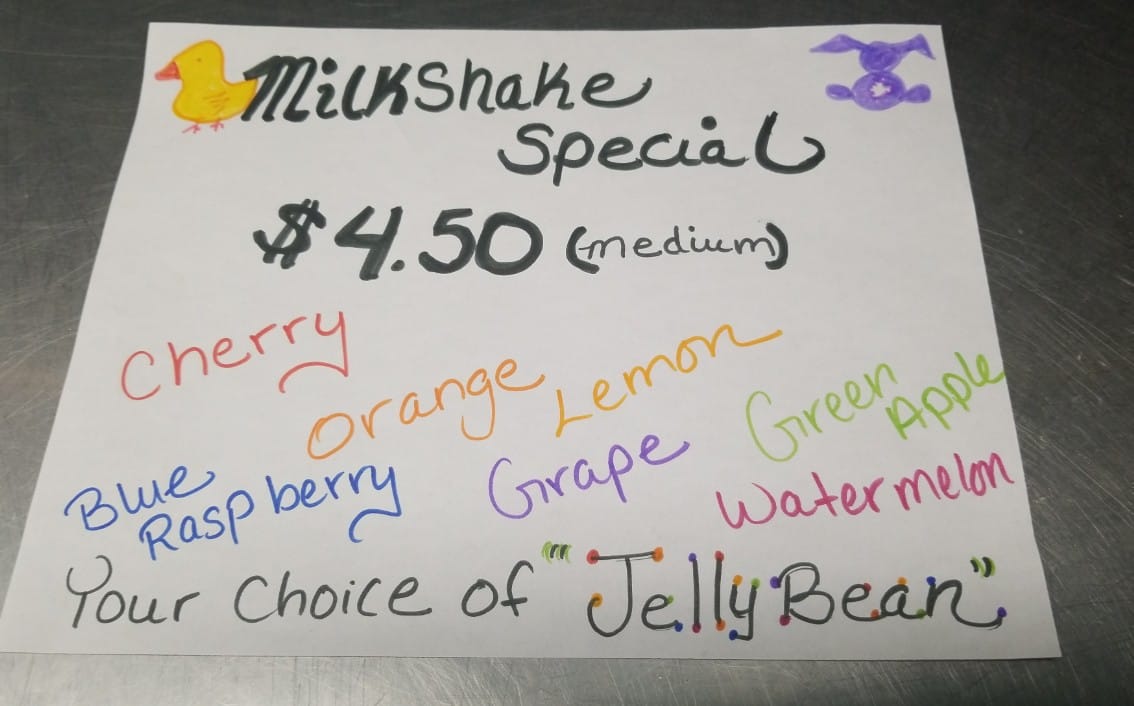 MilkShake
Special
$4.50 (medium)
Cherry
Orange
Lemon
Green
Apple
Blue
Raspberry
Grape
Watermelon
Your Choice of "Jelly Bean"